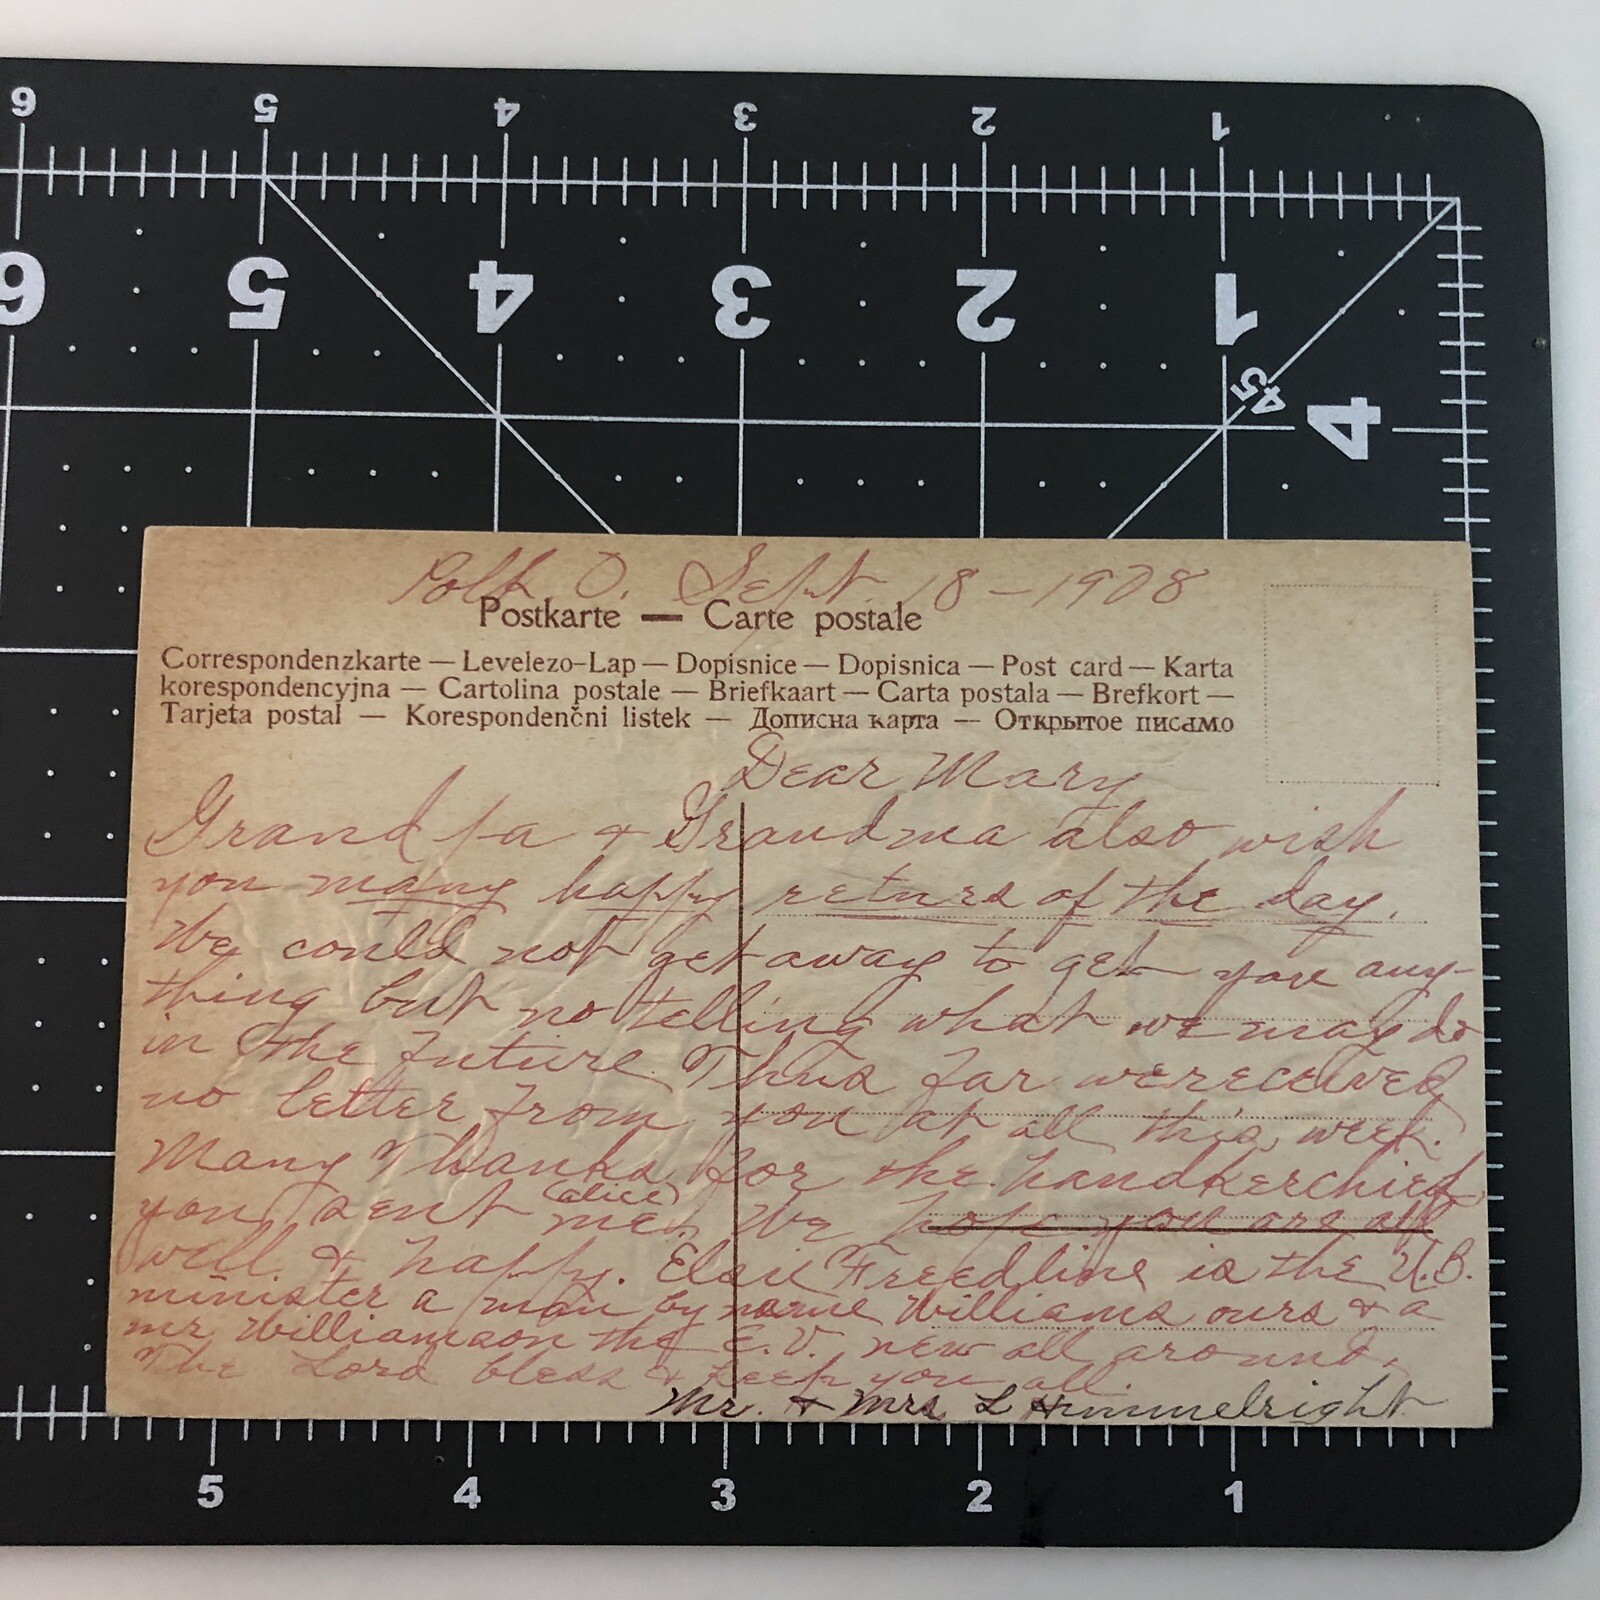 6 5 4 3 2 1
6 5 4 3 2 1
45
4
Polk O. Sept. 18 – 1908
Postkarte — Carte postale
Correspondenzkarte — Levelezo-Lap — Dopisnice — Dopisnica — Post card — Karta
korespondencyjna — Cartolina postale — Briefkaart — Carta postala — Brefkort —
Tarjeta postal — Korespondenčni listek — Дописна карта — Открытое писамо
Dear Mary
Grandpa & Grandma also wish
you many happy returns of the day.
We could not get away to get you any-
thing but no telling what we may do
in the future. Thus far we received
no letter from you at all this week.
Many Thanks for the handkerchief
you sent me (Alice). We hope you are all
well & happy. Elsie Freedline is the U.B.
minister a man by name Williams ours & a
mr Williamson the E.V. new all around.
The Lord bless & keep you all.
Mr. & Mrs L Himmelright
5 4 3 2 1